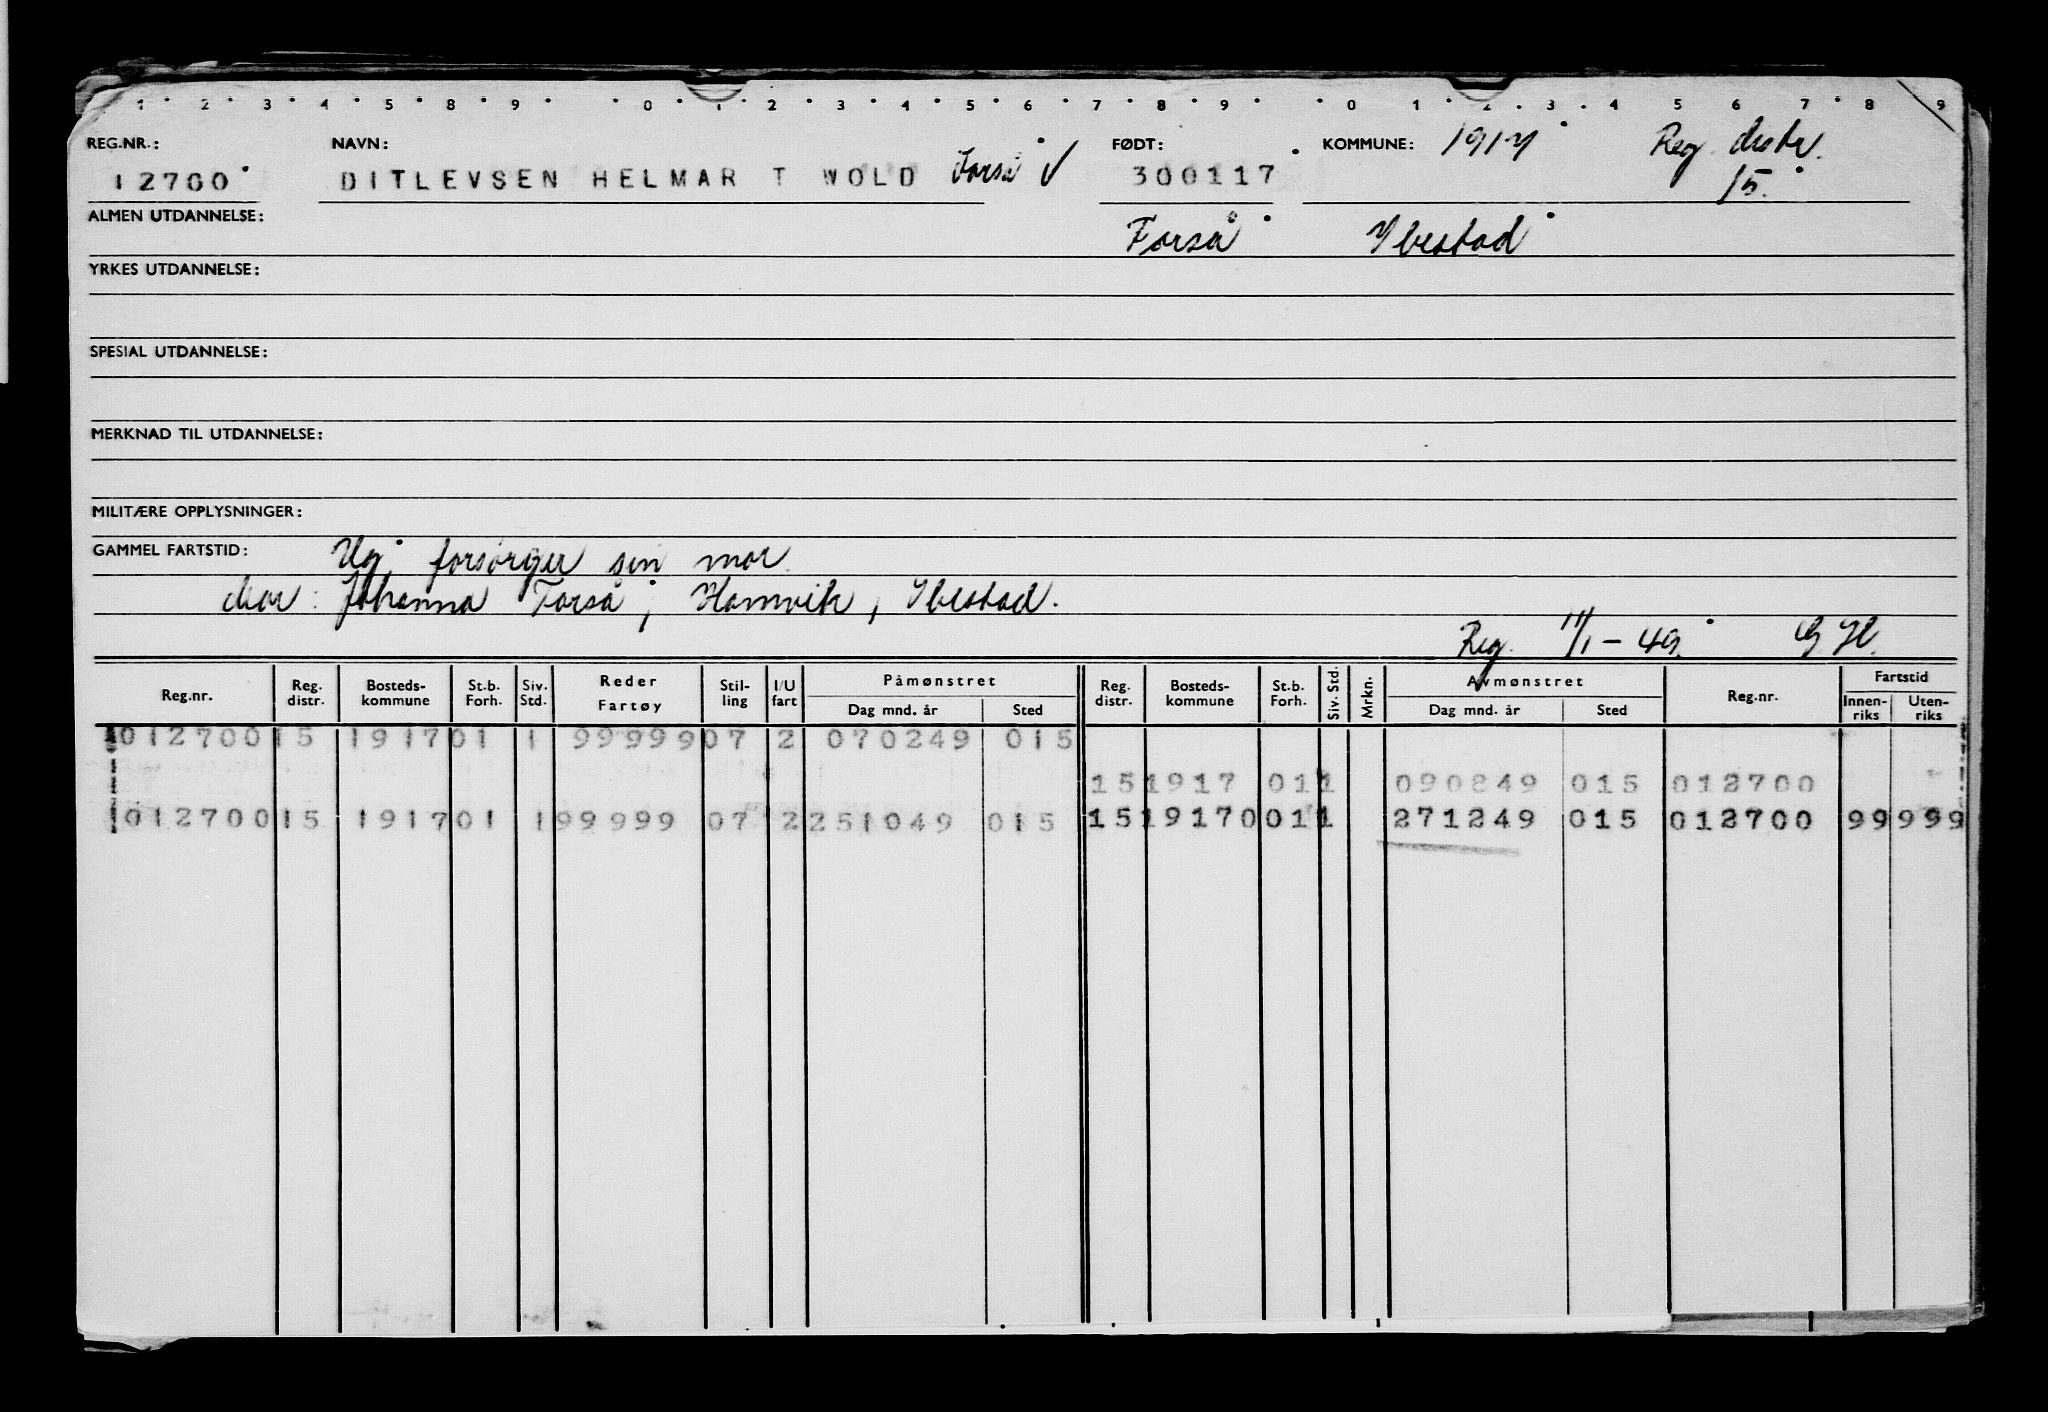 1 2 3 4 5 8 9 0 1 2 3 4 5 6 7 8 9 0 1 2 3 4 5 6 7 8 9
REG.NR.: NAVN: FØDT: KOMMUNE: 1917 Reg. distr.
12700 DITLEVSEN HELMAR T WOLD Forså √ 300117 15.
ALMEN UTDANNELSE: Forså Ibestad
YRKES UTDANNELSE:
SPESIAL UTDANNELSE:
MERKNAD TIL UTDANNELSE:
MILITÆRE OPPLYSNINGER:
GAMMEL FARTSTID: Ug. forsørger sin mor.
Mor: Johanna Forså, Hamvik, Ibestad.
Reg. 11/1-49. G H.
Reg.nr. Reg. distr. Bosteds-kommune St.b. Forh. Siv. Std. Reder Fartøy Stil-ling I/U fart Påmønstret Dag mnd. år Sted Reg. distr. Bosteds-kommune St.b. Forh. Siv. Std. Mrkn. Avmønstret Dag mnd. år Sted Reg.nr. Fartstid Innen-riks Uten-riks
012700 15 1917 01 1 99999 07 2 070249 015
15 1917 01 1 090849 015 012700
012700 15 1917 01 1 99999 07 2 251049 015 15 19170 01 1 271249 015 012700 99 999